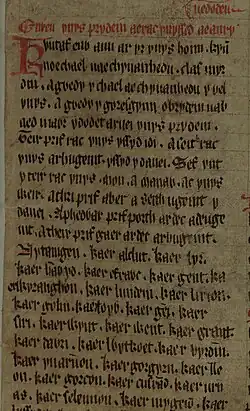 Enweu ynys prydein ae rac ynyssed ae anry
Kyntaf enw auu ar yr ynys honn. kynn
noe chael nae chyuanhedu. clas myr
din. A gwedy y chael ae chyuanhedu y vel
ynys. A gwedy y goresgyn o brydein uab
aed mawr y dodet arnei ynys prydein.
Teir prif rac ynys yssyd idi. a seith rac
ynys arhugeint yssyd y danei. Sef ynt
y teir rac ynys. mon. a manaw. ac ynys
weir. a thri prif aber a seith ugeint y
danei. A phedwar prif porth ar dec a deuge
int. a their prif gaer ar dec ar hugeint.
Nyt amgen. kaer alclut. kaer lyr.
kaer hawyd. kaer efrawc. kaer gent. ka
er wyranghon. kaer lundein. kaer lirion.
kaer golin. kaer loyw. kaer gei. kaer
siri. kaer wynt. kaer went. kaer grant.
kaer dawri. kaer lwytkoet. kaer vyrdin.
kaer yn aruon. kaer gorgyrn. kaer lleo
n. kaer gorcon. kaer cusrad. kaer urn
as. kaer selemion. kaer mygeid. kaer